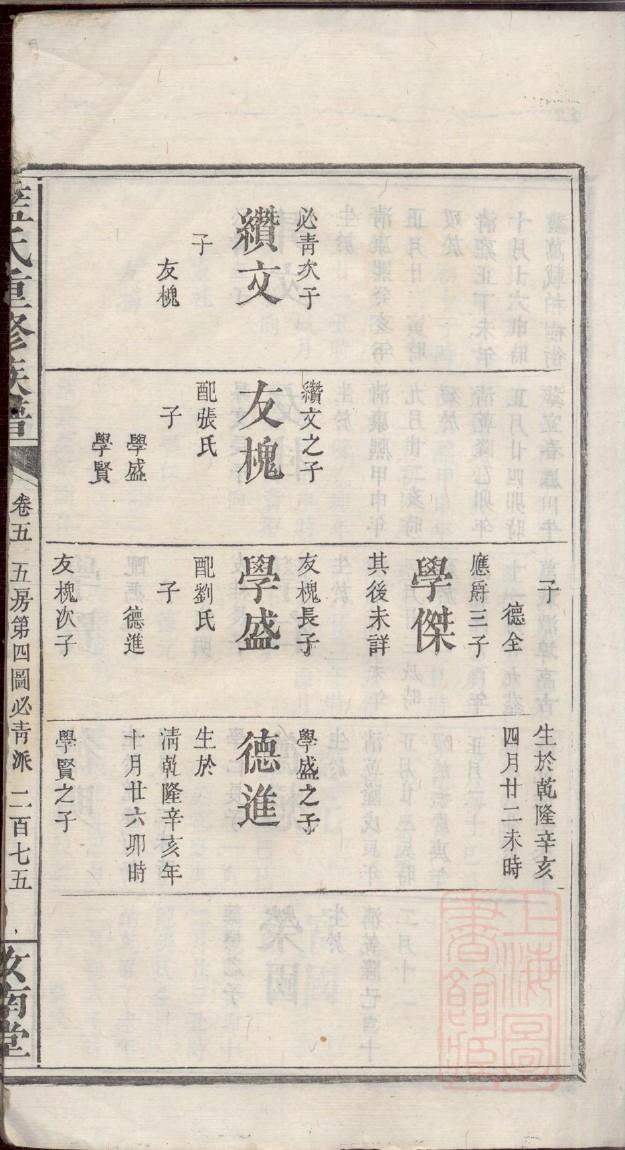 必青次子
纘文
子
友槐
纘文之子
友槐
配張氏
子
學盛
學賢
子
德全
應爵三子
學傑
其後未詳
友槐長子
學盛
配劉氏
子
德進
友槐次子
生於乾隆辛亥
四月廿二未時
學盛之子
德進
生於
清乾隆辛亥年
十月廿六卯時
學賢之子
藍氏重修族譜
卷五
五房第四圖必青派
二百七五
汝南堂
上海圖書館藏